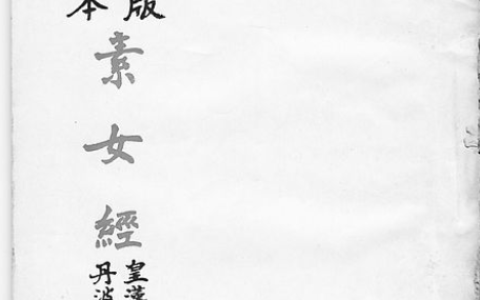 版
本
素女經
皇漢
丹波